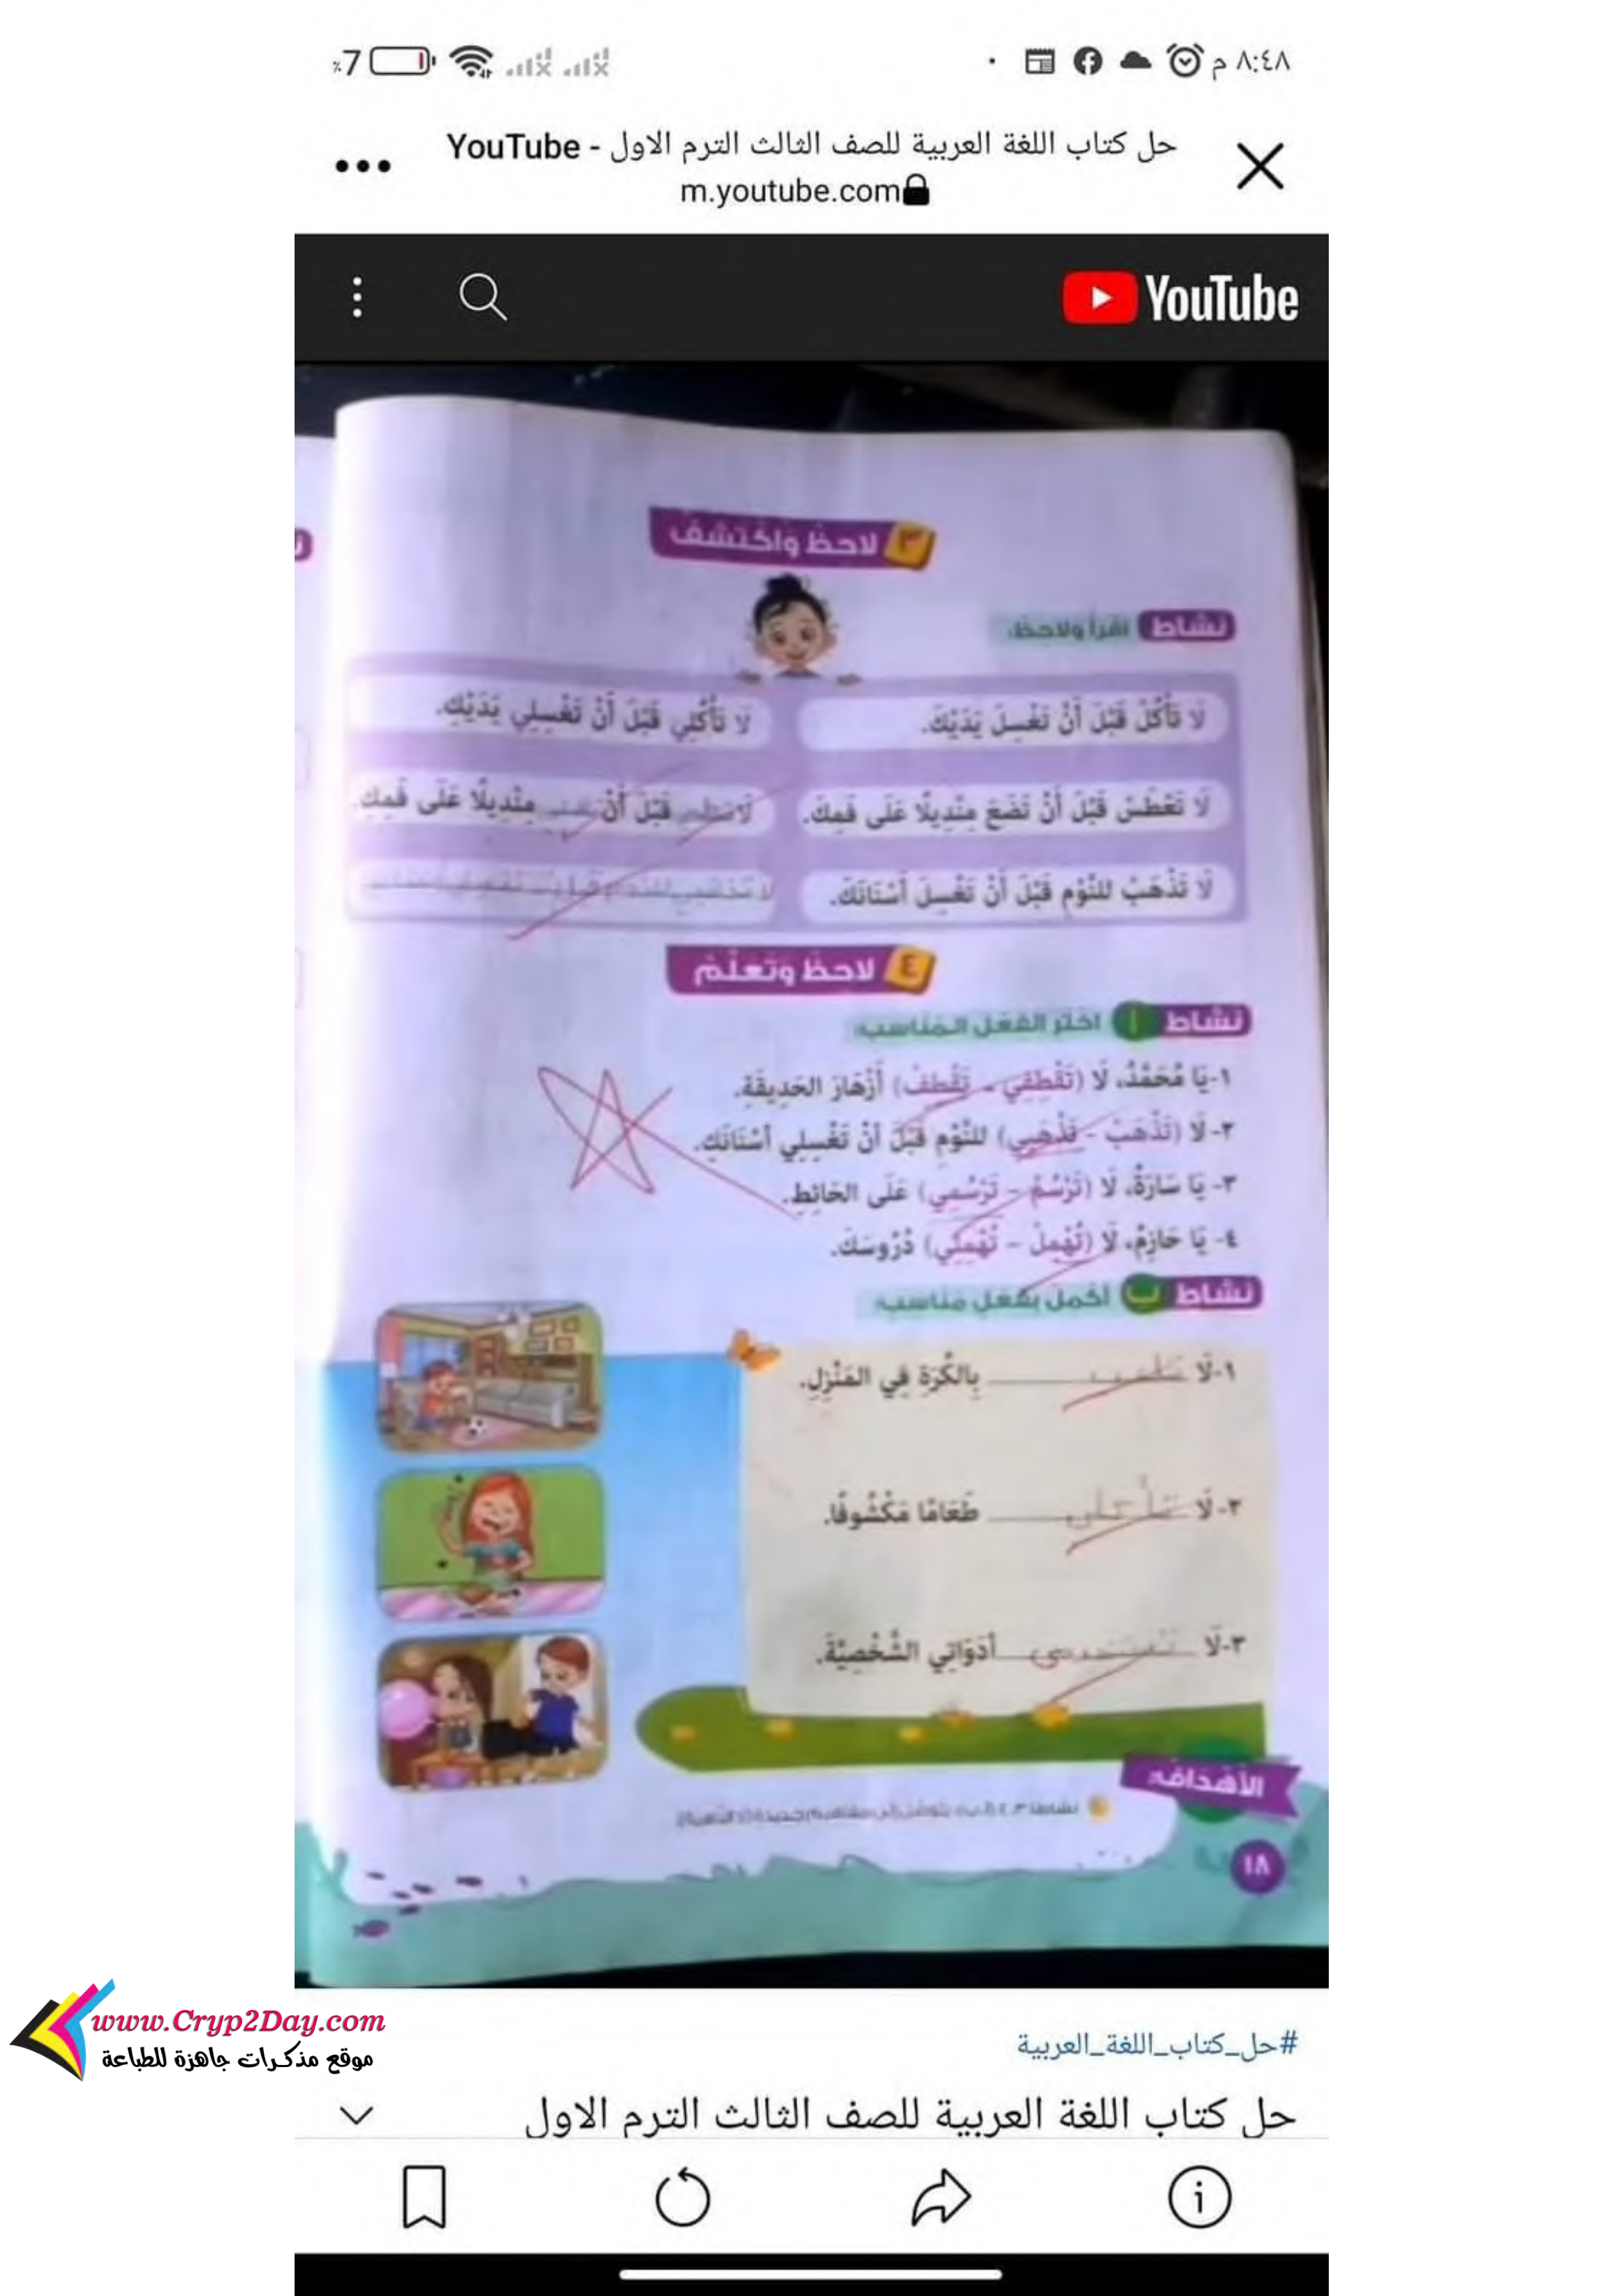 ٨:٤٨ م
%7
حل كتاب اللغة العربية للصف الثالث الترم الاول - YouTube
m.youtube.com
YouTube
٣ لاحظ واكتشف
نشاط اقرأ ولاحظ:
لَا تَأْكُلْ قَبْلَ أَنْ تَغْسِلَ يَدَيْكَ.
لَا تَأْكُلِي قَبْلَ أَنْ تَغْسِلِي يَدَيْكِ.
لَا تَعْطَسْ قَبْلَ أَنْ تَضَعَ مِنْدِيلًا عَلَى فَمِكَ.
لَا قَبْلَ أَنْ مِنْدِيلًا عَلَى فَمِكِ.
لَا تَذْهَبْ لِلنَّوْمِ قَبْلَ أَنْ تَغْسِلَ أَسْنَانَكَ.
٤ لاحظ وتعلَّم
نشاط أ اختر الفعل المناسب:
١-يَا مُحَمَّدُ، لَا (تَقْطِفِي - تَقْطِفْ) أَزْهَارَ الحَدِيقَةِ.
٢- لَا (تَذْهَبْ - تَذْهَبِي) لِلنَّوْمِ قَبْلَ أَنْ تَغْسِلِي أَسْنَانَكِ.
٣- يَا سَارَةُ، لَا (تَرْسُمْ - تَرْسُمِي) عَلَى الحَائِطِ.
٤- يَا حَازِمُ، لَا (تُهْمِلْ - تُهْمِلِي) دُرُوسَكَ.
نشاط ب أكمل بفعل مناسب:
١-لَا تلعب بِالكُرَةِ فِي المَنْزِلِ.
٢-لَا تأكلي طَعَامًا مَكْشُوفًا.
٣-لَا تستخدمي أَدَوَاتِي الشَّخْصِيَّةَ.
الأهداف:
١٨
www.Cryp2Day.com
موقع مذكرات جاهزة للطباعة
#حل_كتاب_اللغة_العربية
حل كتاب اللغة العربية للصف الثالث الترم الاول